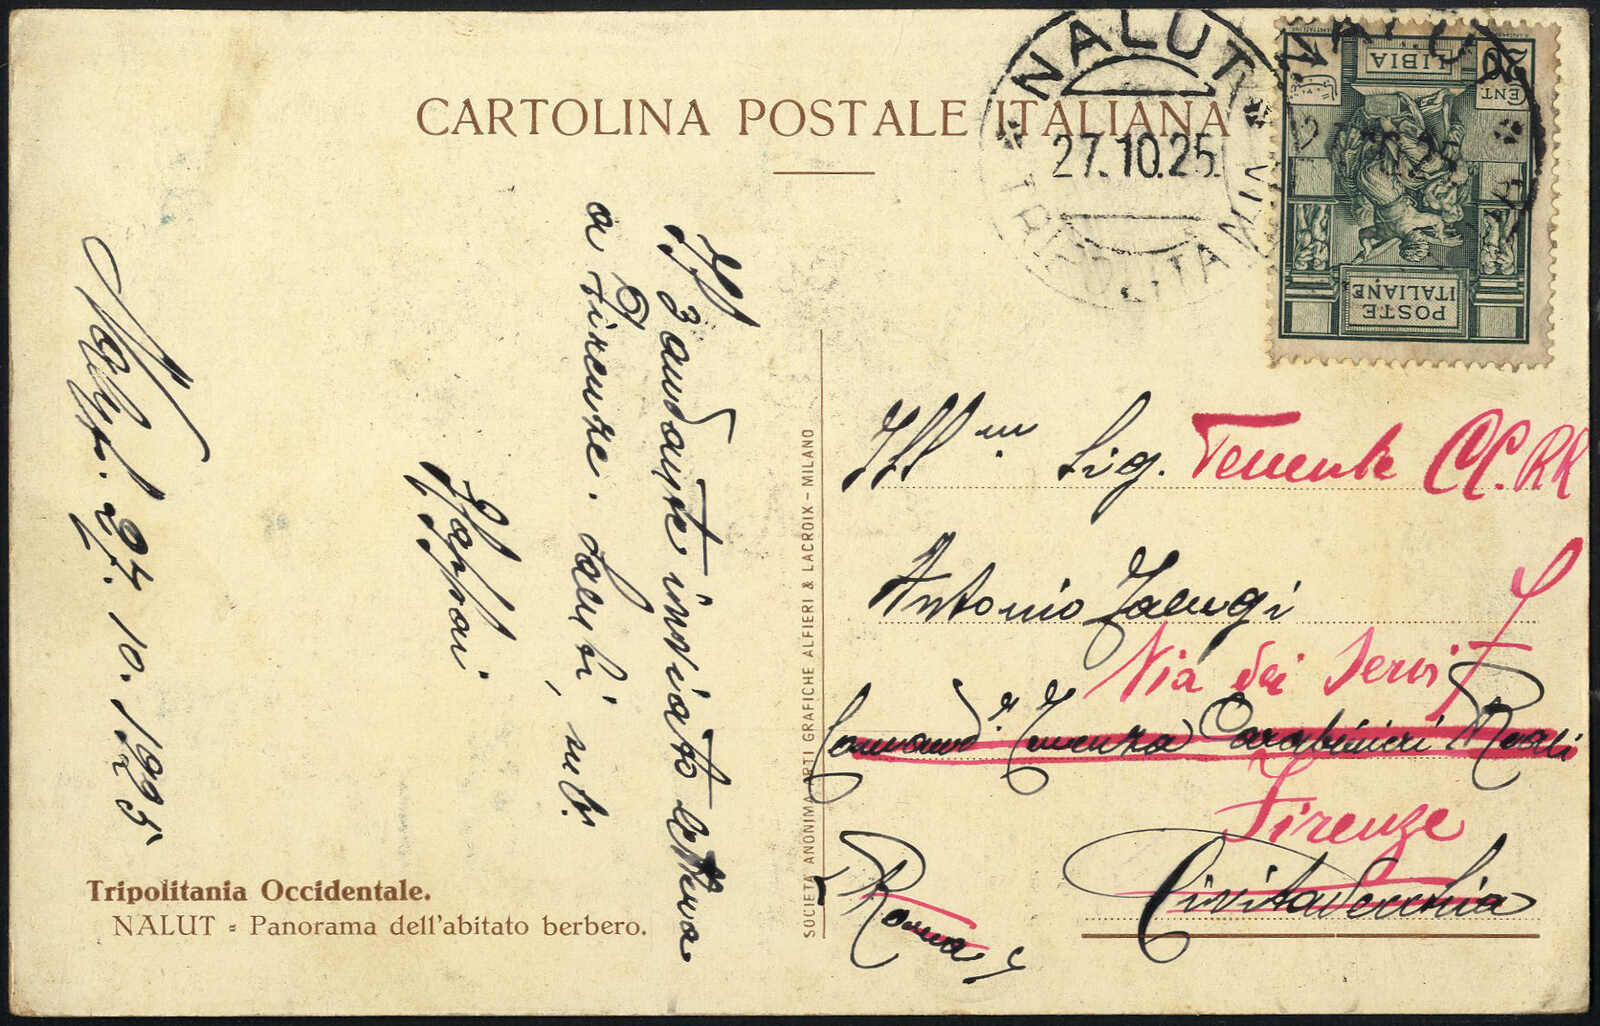 CARTOLINA POSTALE ITALIANA
NALUT
27.10.25
TRIPOLITANIA
LIBIA
CENT. 20
POSTE
ITALIANE
Nalut. 27. 10. 1925
Il 3 andante inviato lettera
a Firenze. Saluti,
Ill^mo Sig. Tenente CC. RR
Antonio
Via dei Servi 7
Comando Tenenza Carabinieri Reali
Firenze
Civitavecchia
(Roma)
SOCIETÀ ANONIMA ARTI GRAFICHE ALFIERI & LACROIX – MILANO
Tripolitania Occidentale.
NALUT - Panorama dell'abitato berbero.